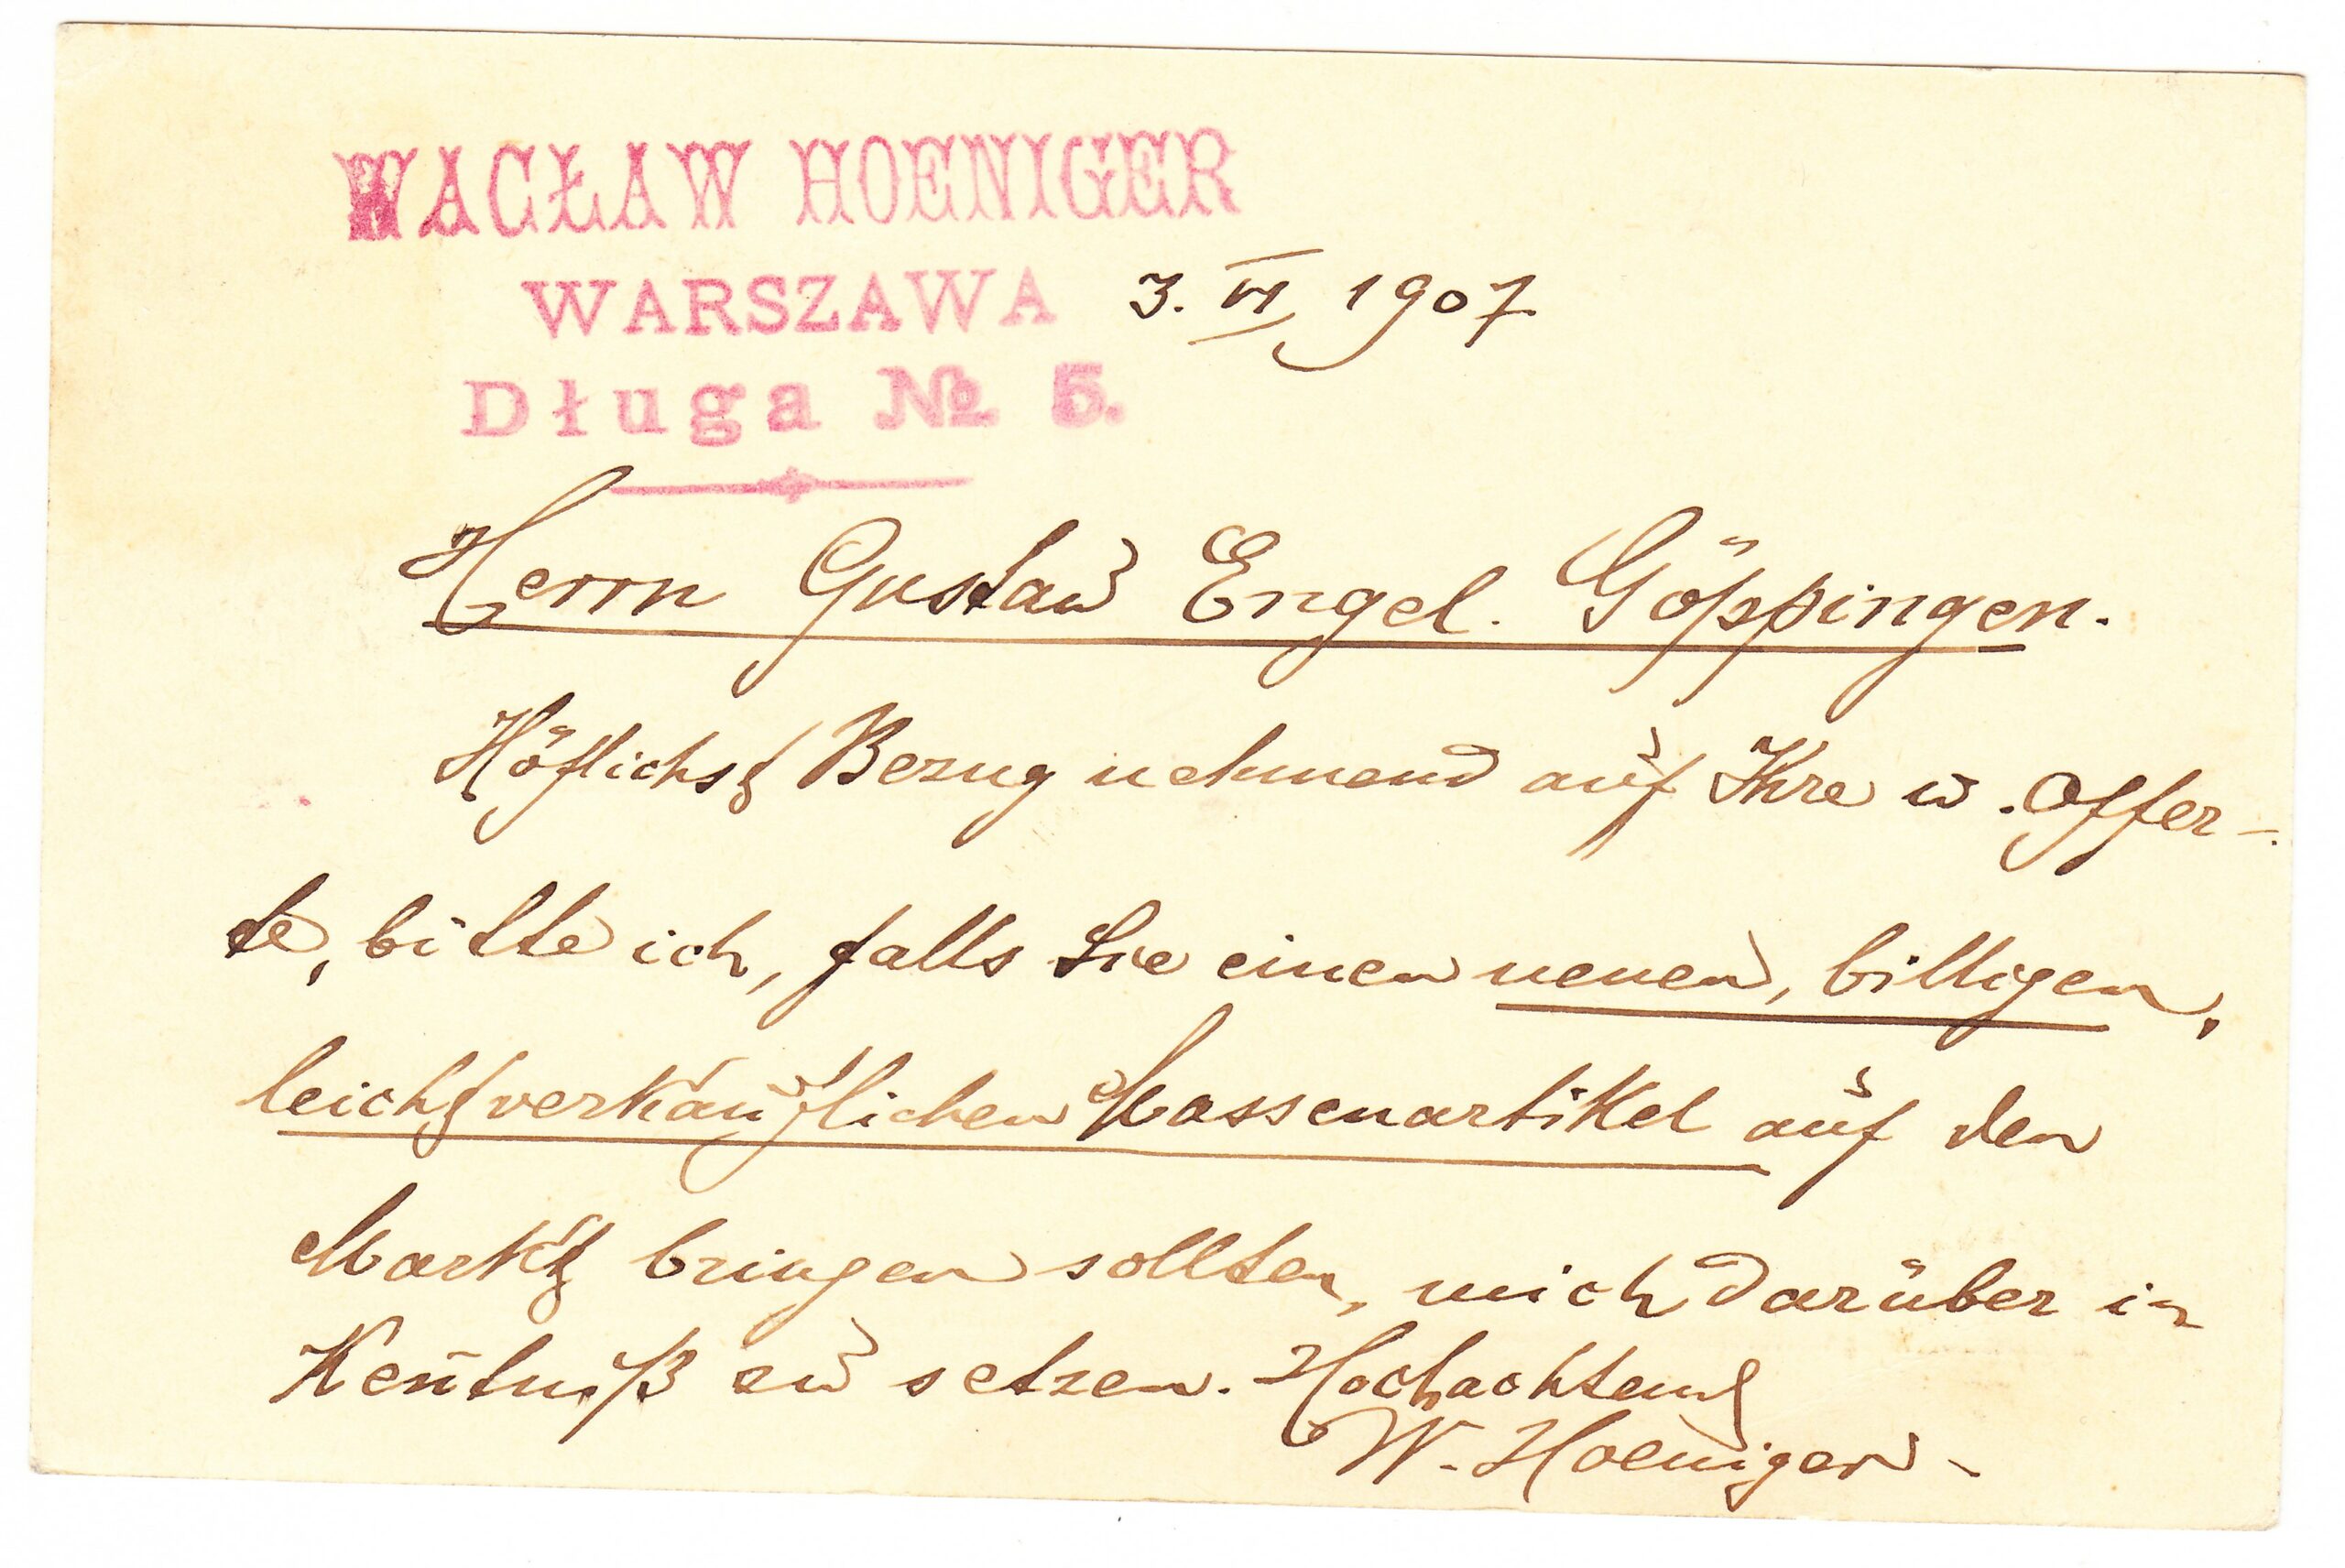 WACŁAW HOENIGER
WARSZAWA 3. VI 1907.
Długa № 5.
Herrn Gustav Engel. Göppingen.
Höflichst Bezug nehmend auf Ihre w. Offer-
te, bitte ich, falls Sie einen neuen, billigen,
leichtverkäuflichen Massenartikel auf den
Markt bringen sollten, mich darüber in
Keñtniß zu setzen. Hochachtend
W. Hoeniger